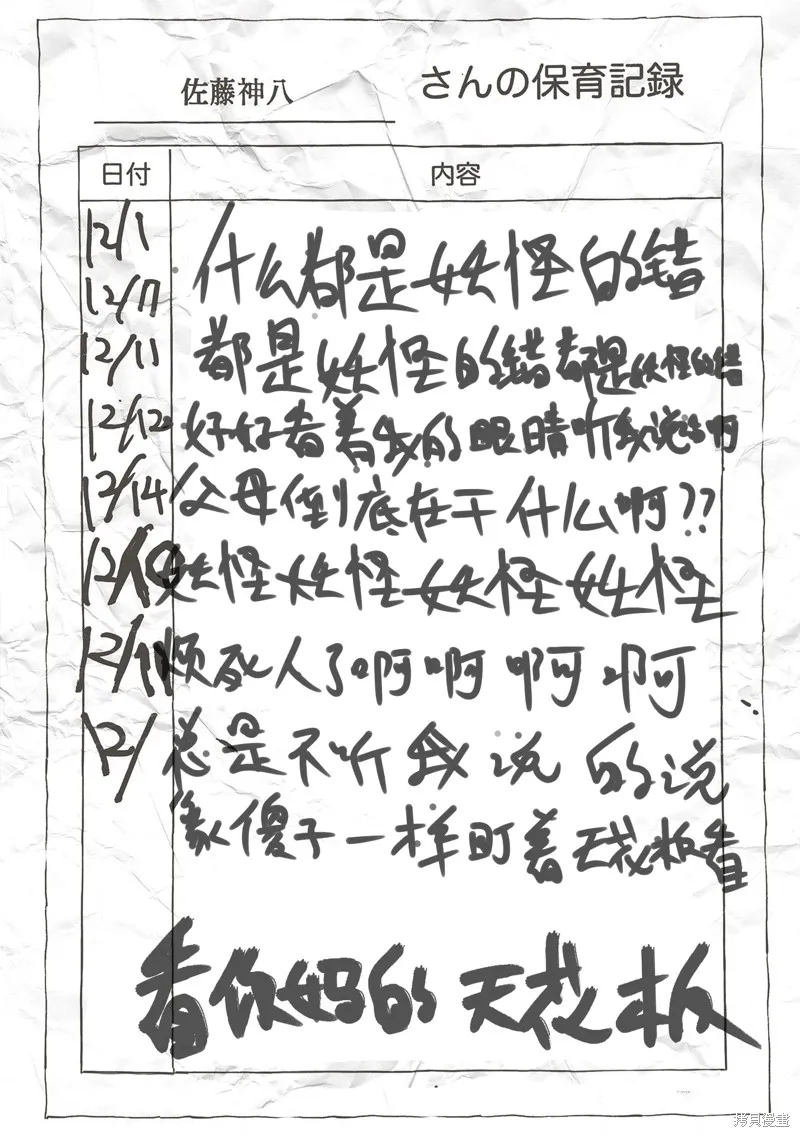 佐藤神八 さんの保育記録
日付 内容
12/1 什么都是妖怪的错
12/7
12/11 都是妖怪的错都是妖怪的错
12/12 好好看着我的眼睛听我说话啊
12/14 父母倒底在干什么啊??
妖怪妖怪妖怪妖怪
烦死人了啊啊啊啊
12/ 总是不听我说的说
象傻子一样盯着天花板看
看你妈的天花板
拷貝漫畫